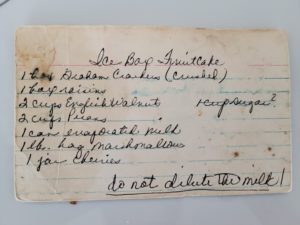 Ice Box Fruitcake
1 box Graham Crackers (crushed)
1 box raisins
2 cups English Walnut 1 cup sugar?
2 cups Pecans
1 can evaporated milk
1 lb. bag marshmallows
1 jar Cherries
do not dilute the milk!